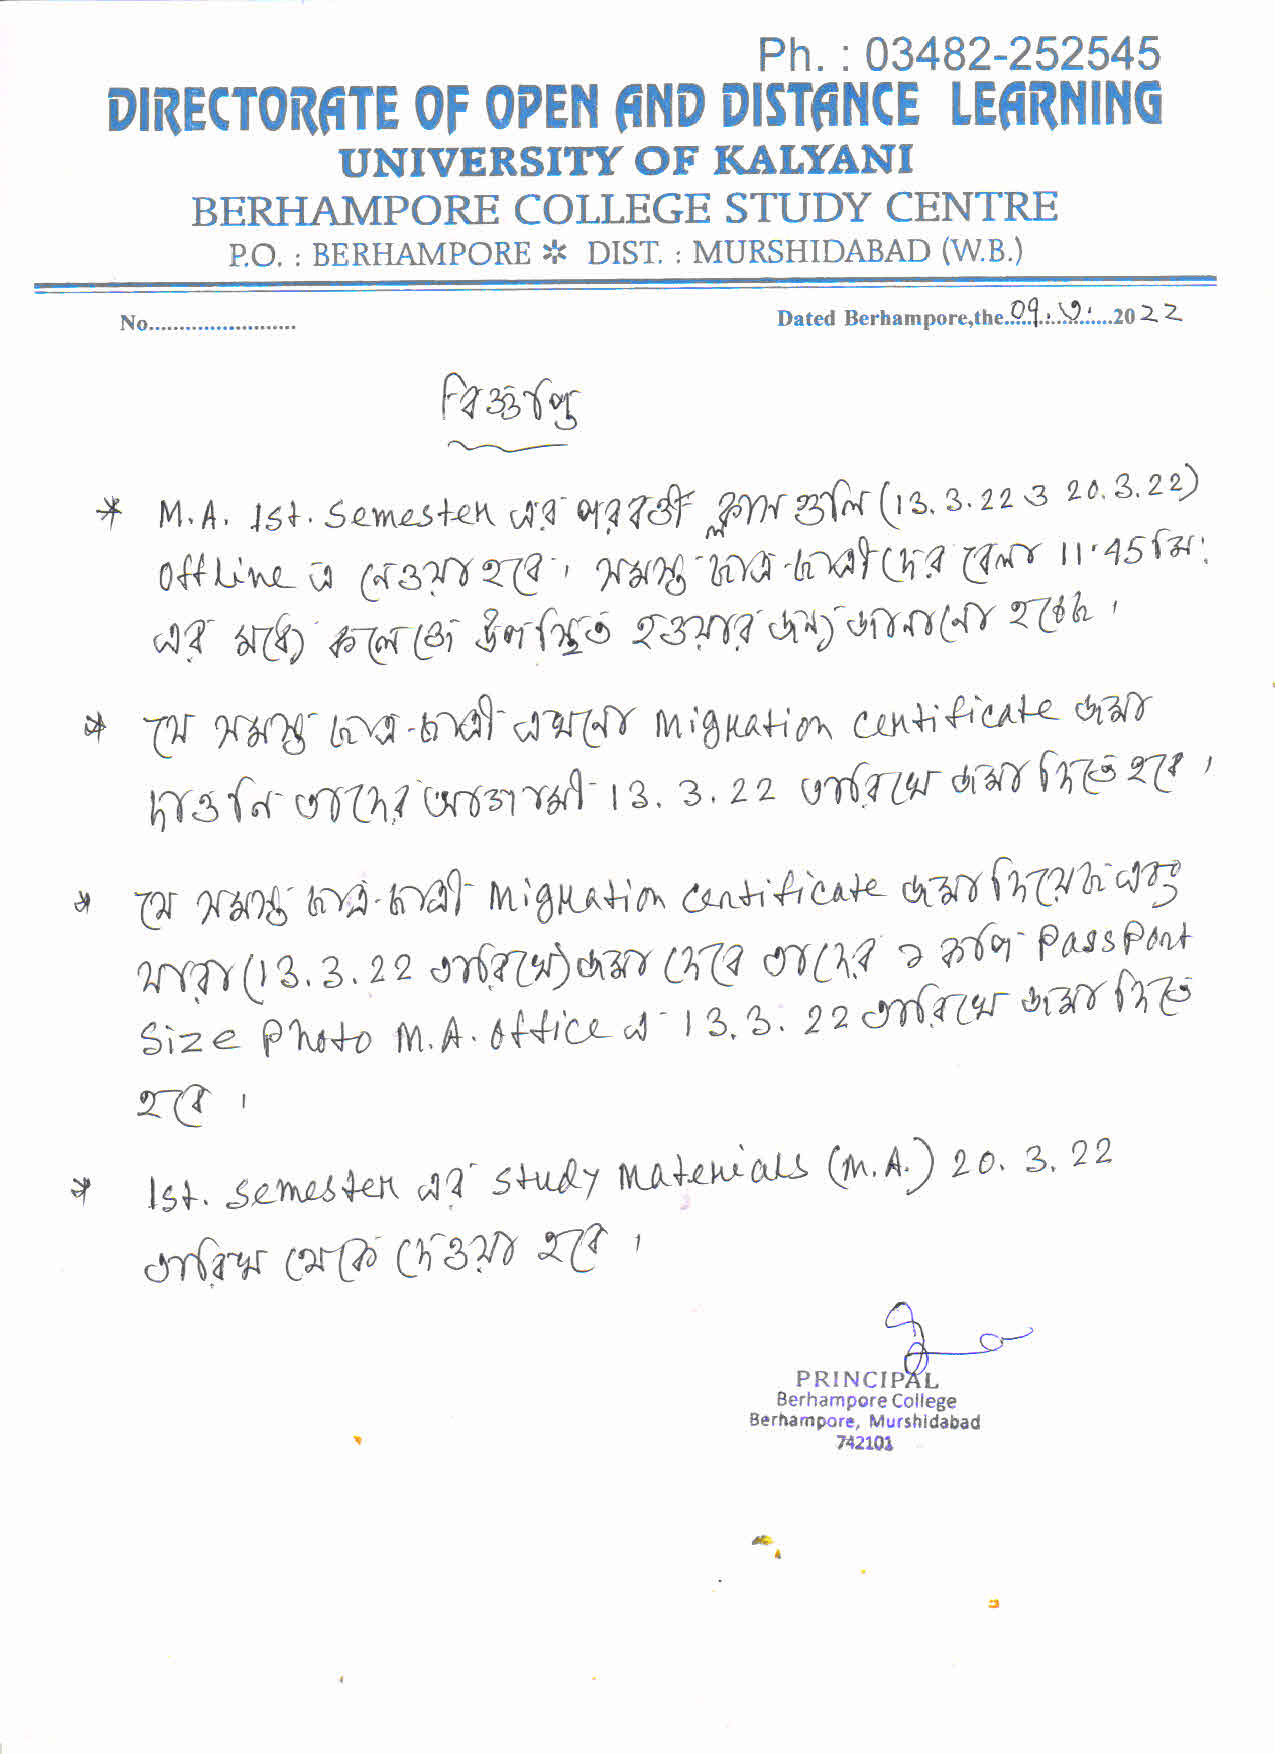 Ph. : 03482-252545
DIRECTORATE OF OPEN AND DISTANCE LEARNING
UNIVERSITY OF KALYANI
BERHAMPORE COLLEGE STUDY CENTRE
P.O. : BERHAMPORE * DIST. : MURSHIDABAD (W.B.)
No........................ Dated Berhampore,the..09.৩.....2022
বিজ্ঞপ্তি
* M.A. 1st. Semester এর পরবর্তী ক্লাস গুলি (13.3.22 ও 20.3.22)
Offline এ নেওয়া হবে। সমস্ত ছাত্র-ছাত্রীদের বেলা 11.45 মি:
এর মধ্যে কলেজে উপস্থিত হওয়ার জন্য জানানো হচ্ছে।
* যে সমস্ত ছাত্র-ছাত্রী এখনো Migration certificate জমা
দাওনি তাদের 13.3.22 তারিখে জমা দিতে হবে।
* যে সমস্ত ছাত্র-ছাত্রী Migration Certificate জমা দিয়েছ এবং
যারা (13.3.22 তারিখে) জমা দেবে তাদের ১ কপি Passport
Size Photo M.A. Office এ 13.3.22 তারিখে জমা দিতে
হবে।
* 1st. Semester এর Study Materials (M.A.) 20.3.22
তারিখ থেকে দেওয়া হবে।
PRINCIPAL
Berhampore College
Berhampore, Murshidabad
742101